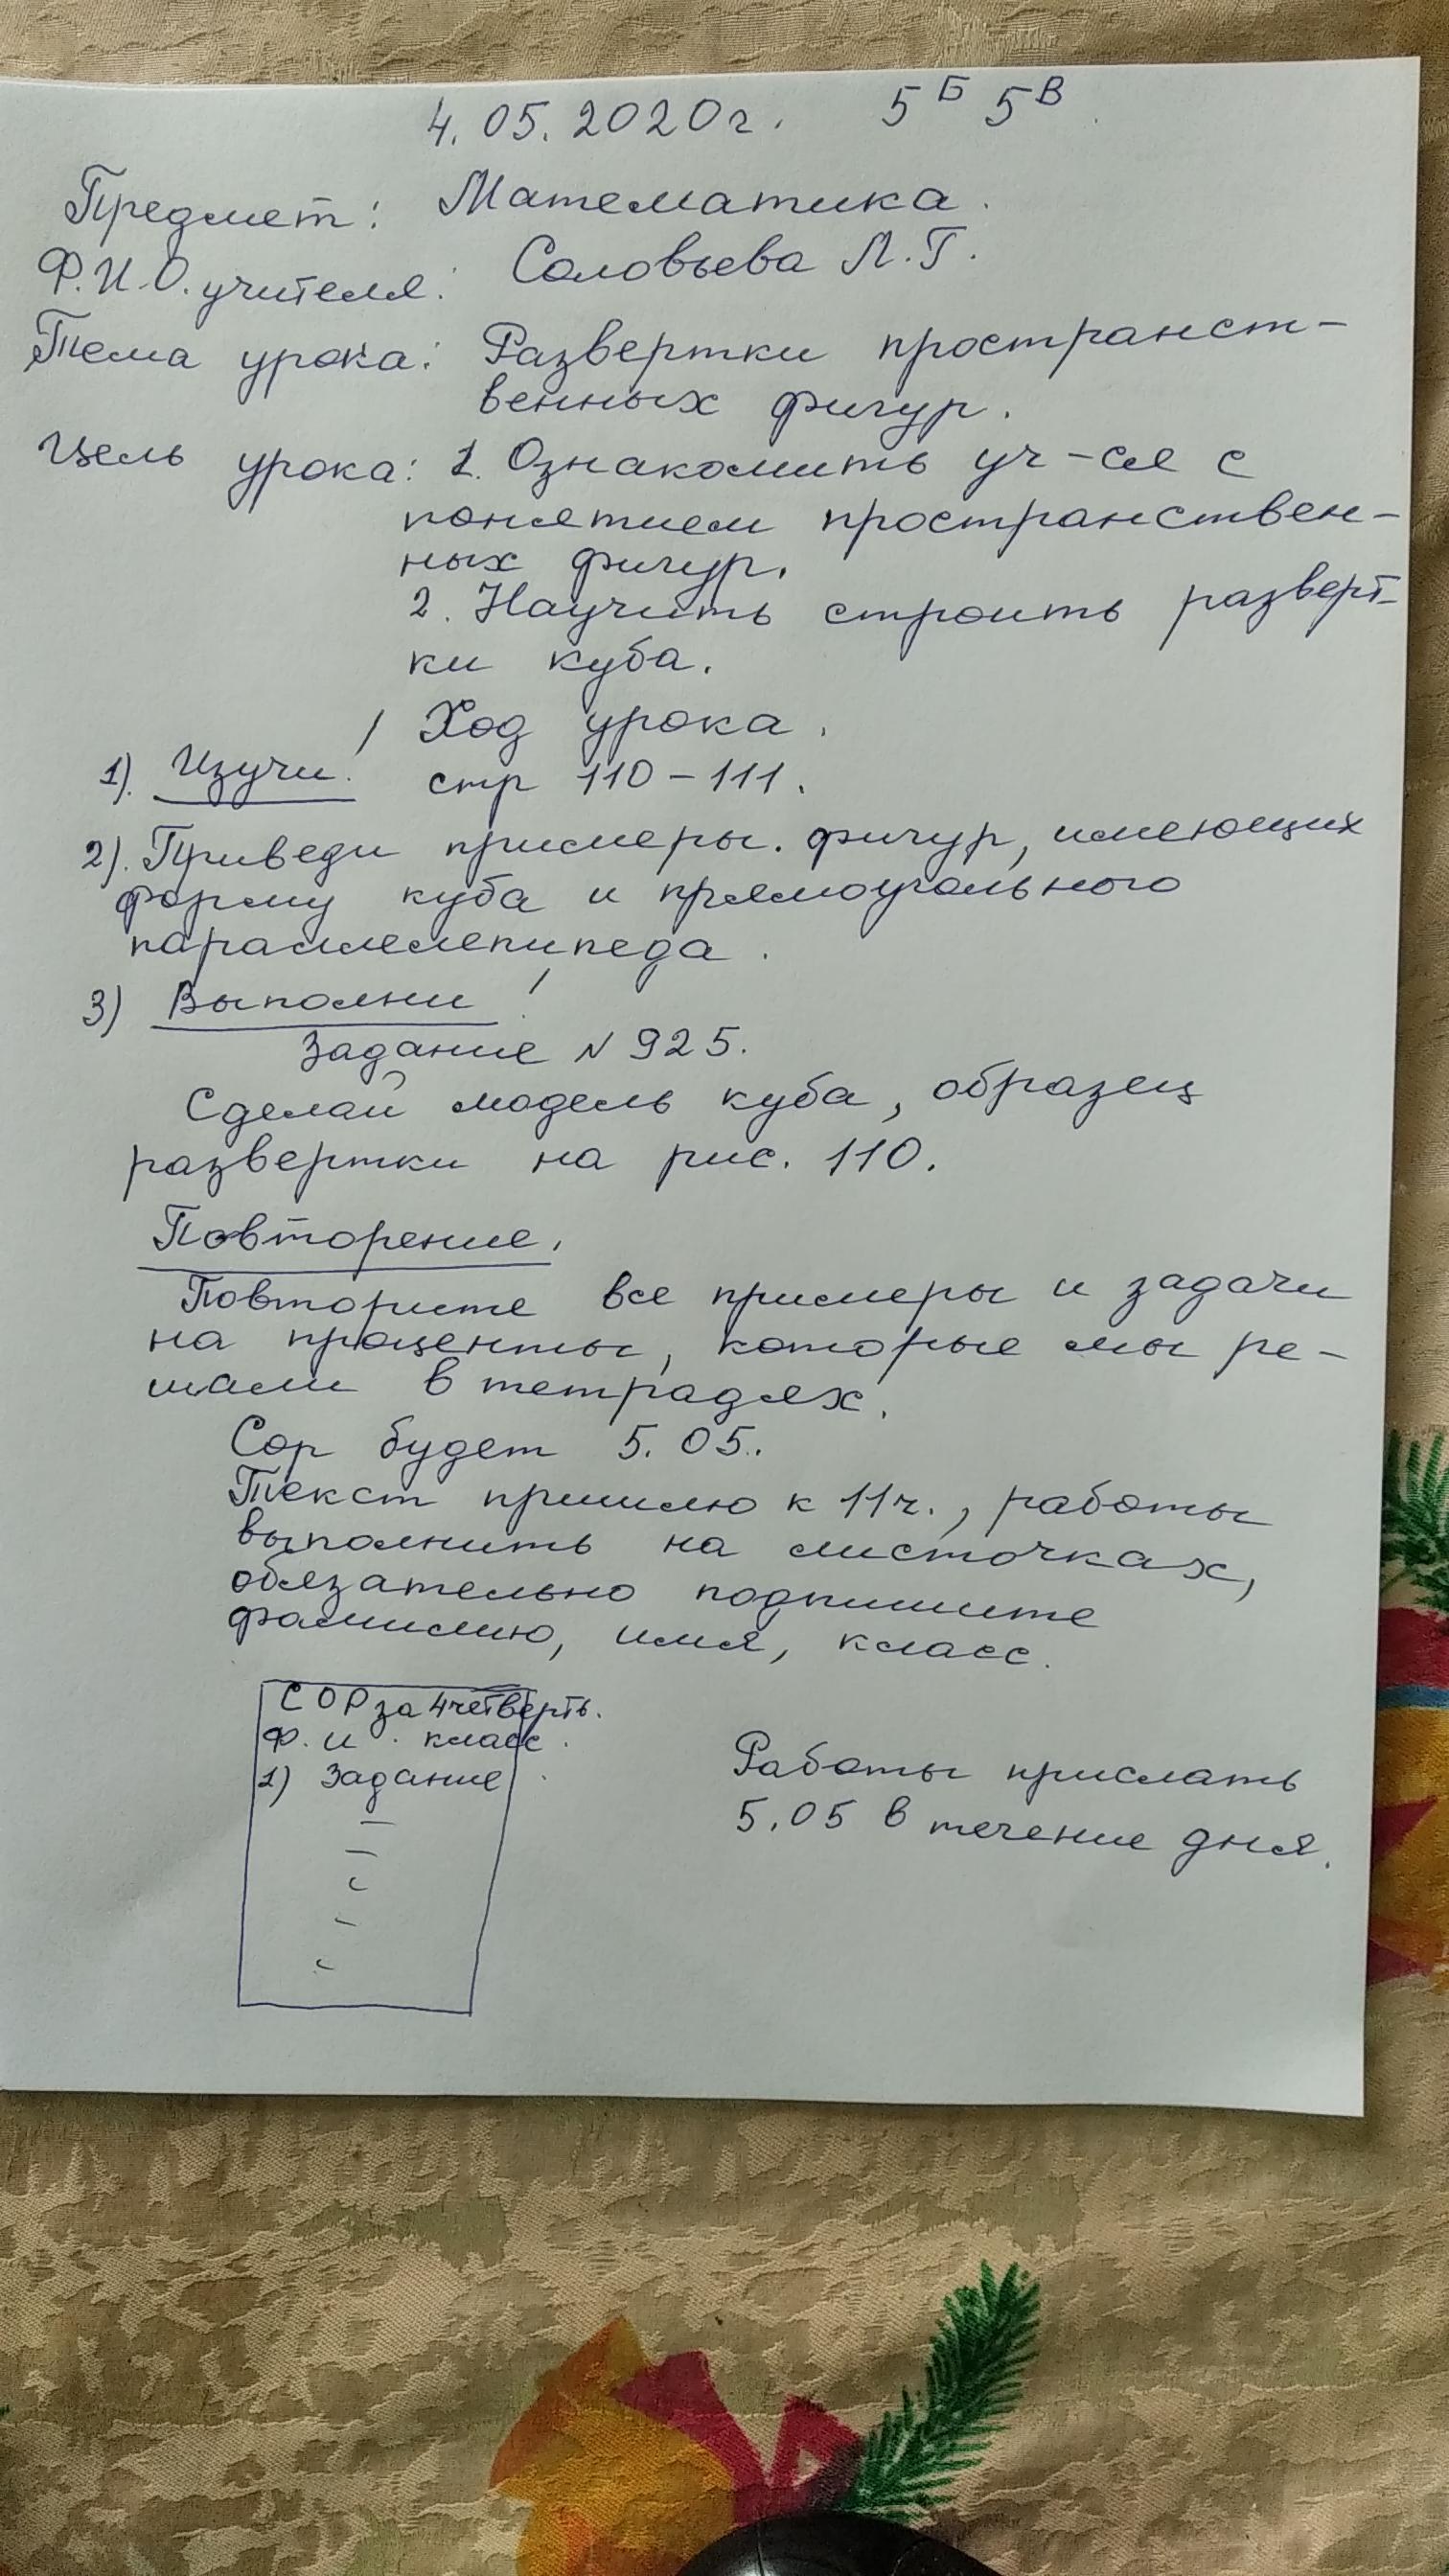 4.05.2020г. 5Б 5В
Предмет: Математика.
Ф.И.О. учителя: Соловьева Л.Г.
Тема урока: Развертки пространст-
венных фигур.
Цель урока: 1. Ознакомить уч-ся с
понятием пространствен-
ных фигур.
2. Научить строить разверт-
ки куба.
Ход урока.
1). Изучи! стр 110-111.
2). Приведи примеры. фигур, имеющих
форму куба и прямоугольного
параллелепипеда.
3) Выполни!
Задание N 925.
Сделай модель куба, образец
развертки на рис. 110.
Повторение.
Повторите все примеры и задачи
на проценты, которые мы ре-
шали в тетрадях.
Сор будет 5.05.
Текст пришлю к 11ч., работы
выполнить на листочках,
обязательно подпишите
фамилию, имя, класс.
СОР за 4 четверть.
Ф.И. класс.
1) Задание
Работы прислать
5.05 в течение дня.